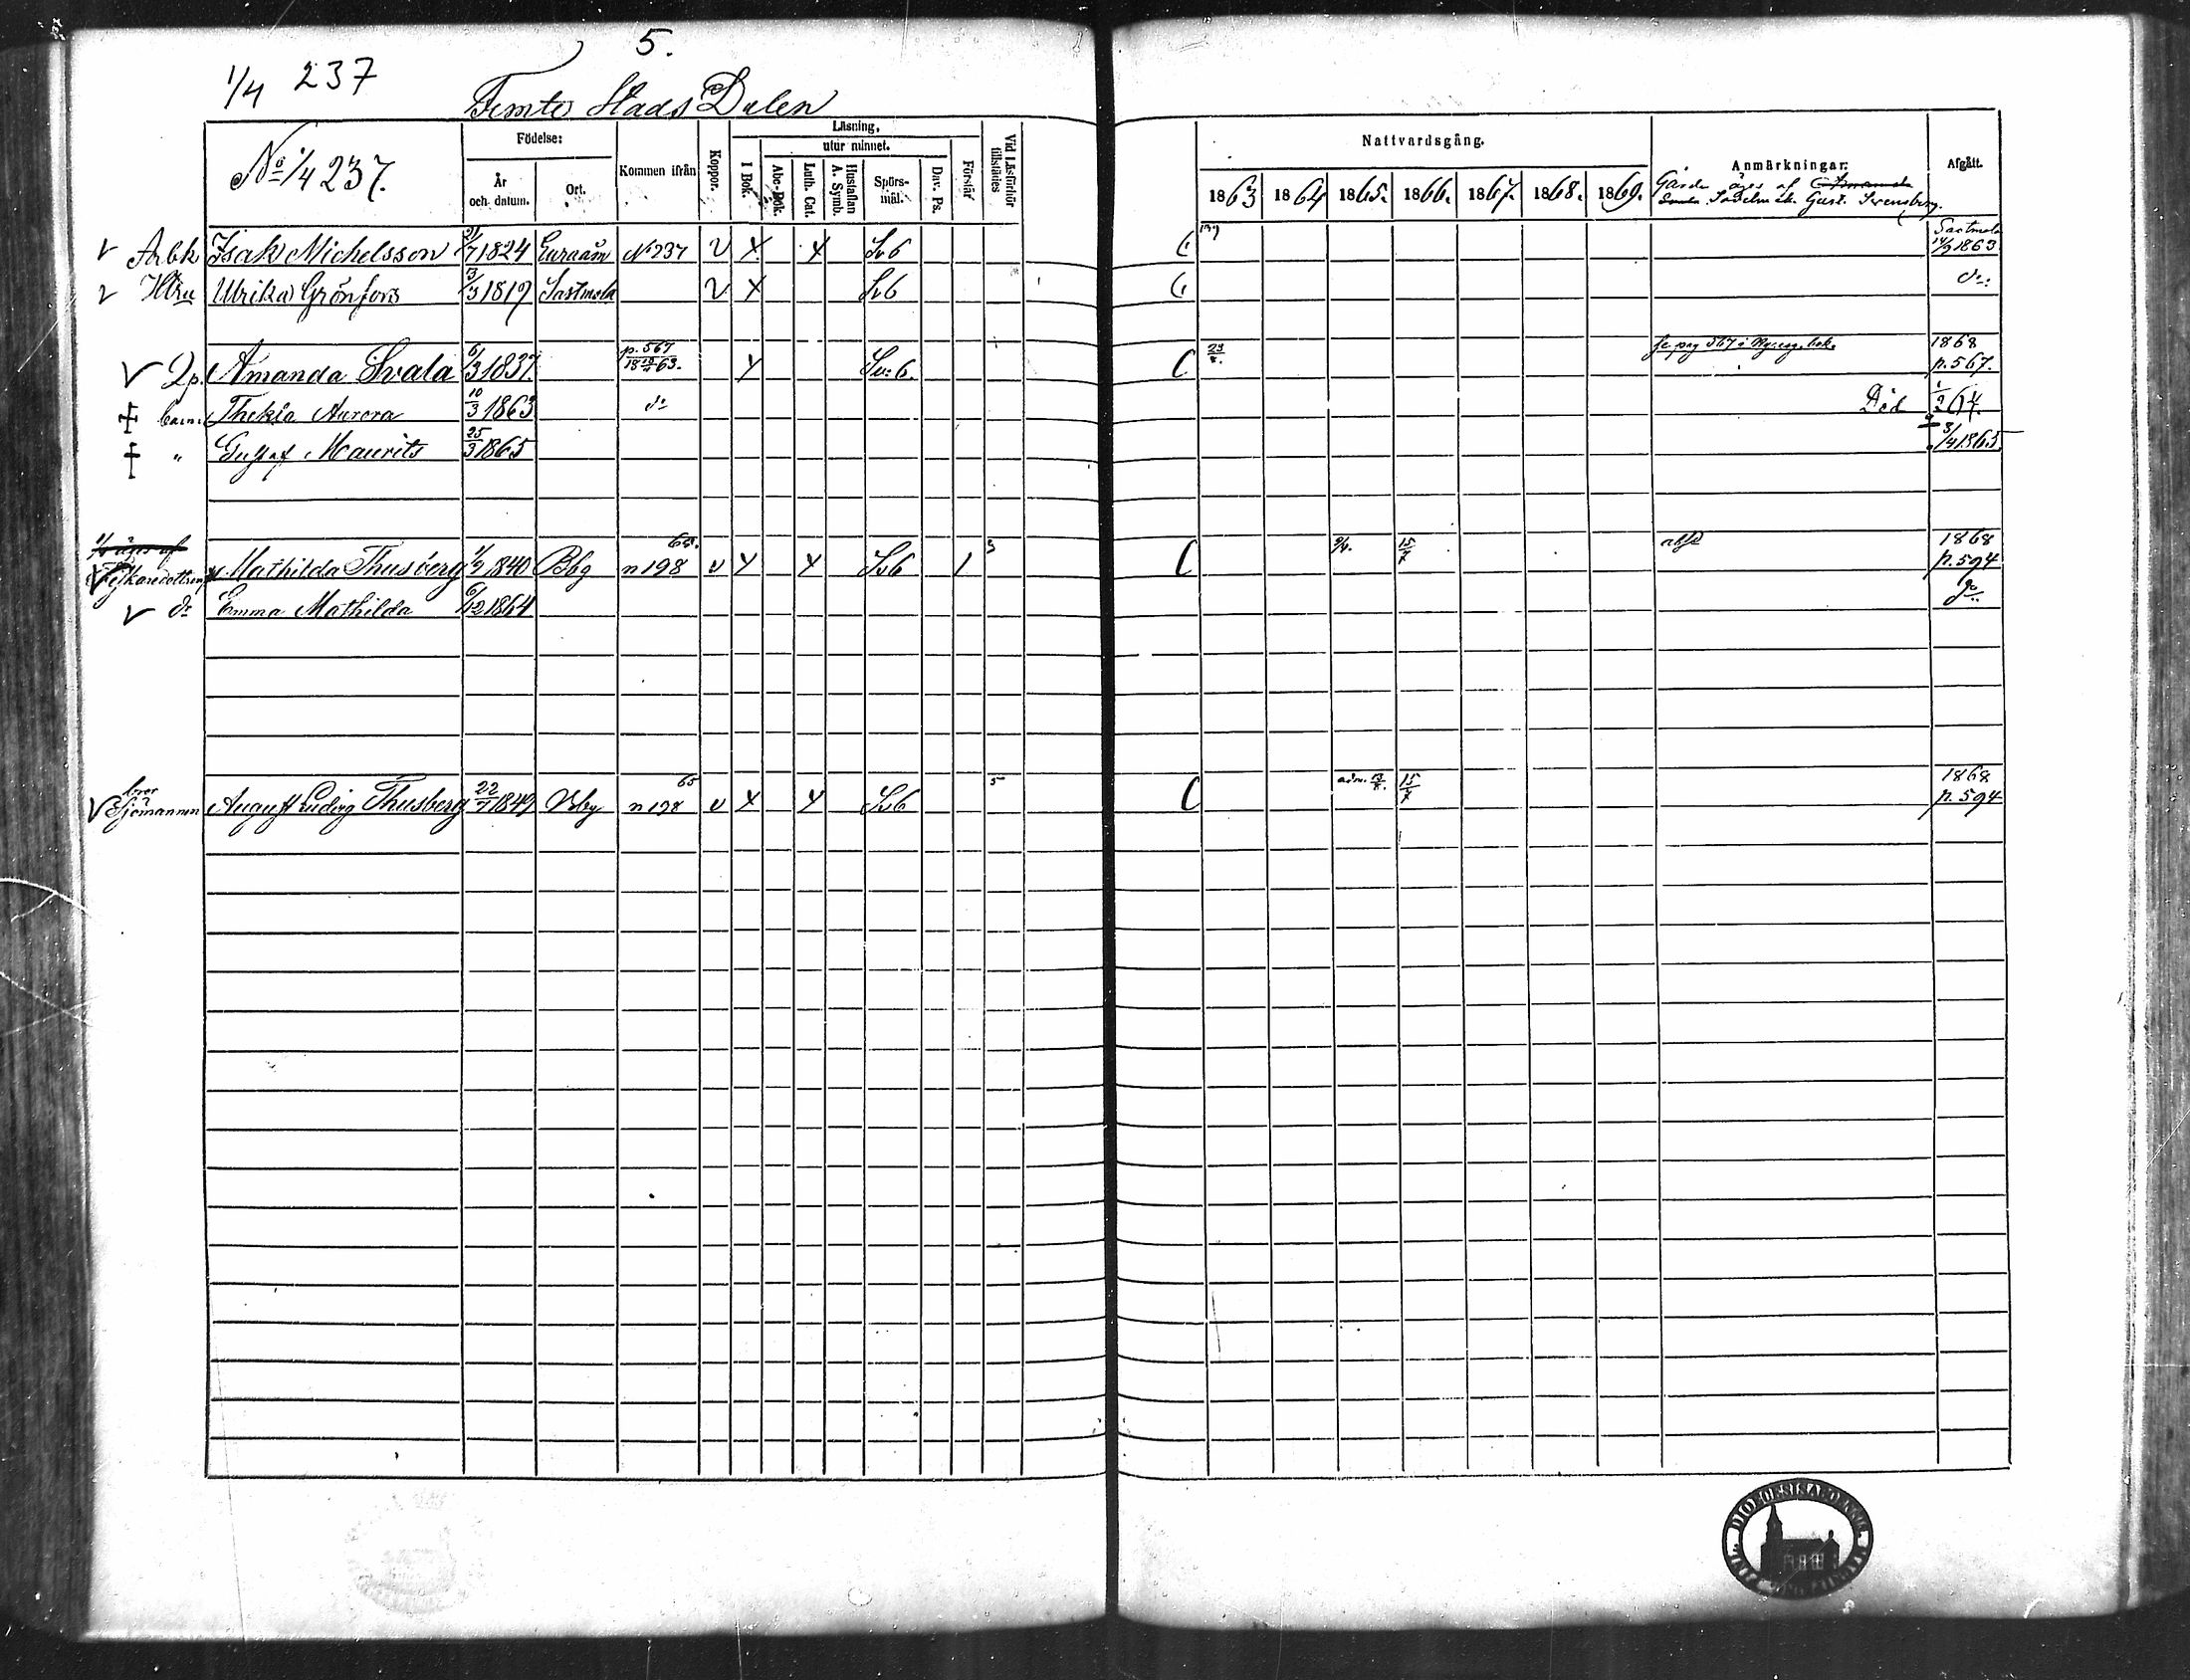 5.
1/4 237
Femte Stads Delen
No 1/4 237.
Födelse:
År och datum.
Ort.
Kommen ifrån
Koppor.
Läsning,
I Bok.
utur minnet.
Abc-Bok.
Luth. Cat.
Hustaflan A. Symb.
Spörsmål.
Dav. Ps.
Förstår
Vid Läsförhör tillstädes
Nattvardsgång.
1863 1864 1865. 1866. 1867. 1868. 1869.
Anmärkningar:
Gården äges af Amanda
Gust. Svensberg.
Afgått.
v Arbk Isak Michelsson 21/7 1824 Euraåm No 237 v x x Sv 6 Sastmola 14/9 1863
v Hstru Ulrika Grönfors 13/3 1819 Sastmola v x Sv 6 do:
v Qp. Amanda Svala 6/3 1837. p. 567 63. x Sv: 6. 23/8. se pag 567 i 1868 p. 567.
barn Thekla Aurora 10/3 1863 do Död 1/2 64.
" Gustaf Maurits 25/3 1865 3/4 1865
1/4 äges af
v Mathilda Thusberg 1/2 1840 Bbg n 198 v x x Sv 6 1 3 15/7 1868 p. 594
v dr Emma Mathilda 6/12 1864 do
bror
v Sjömannen August Ludvig Thusberg 22/7 1849 Bbg n 198 65 v x x Sv 6 5 adm. 15/7 1868 p. 594